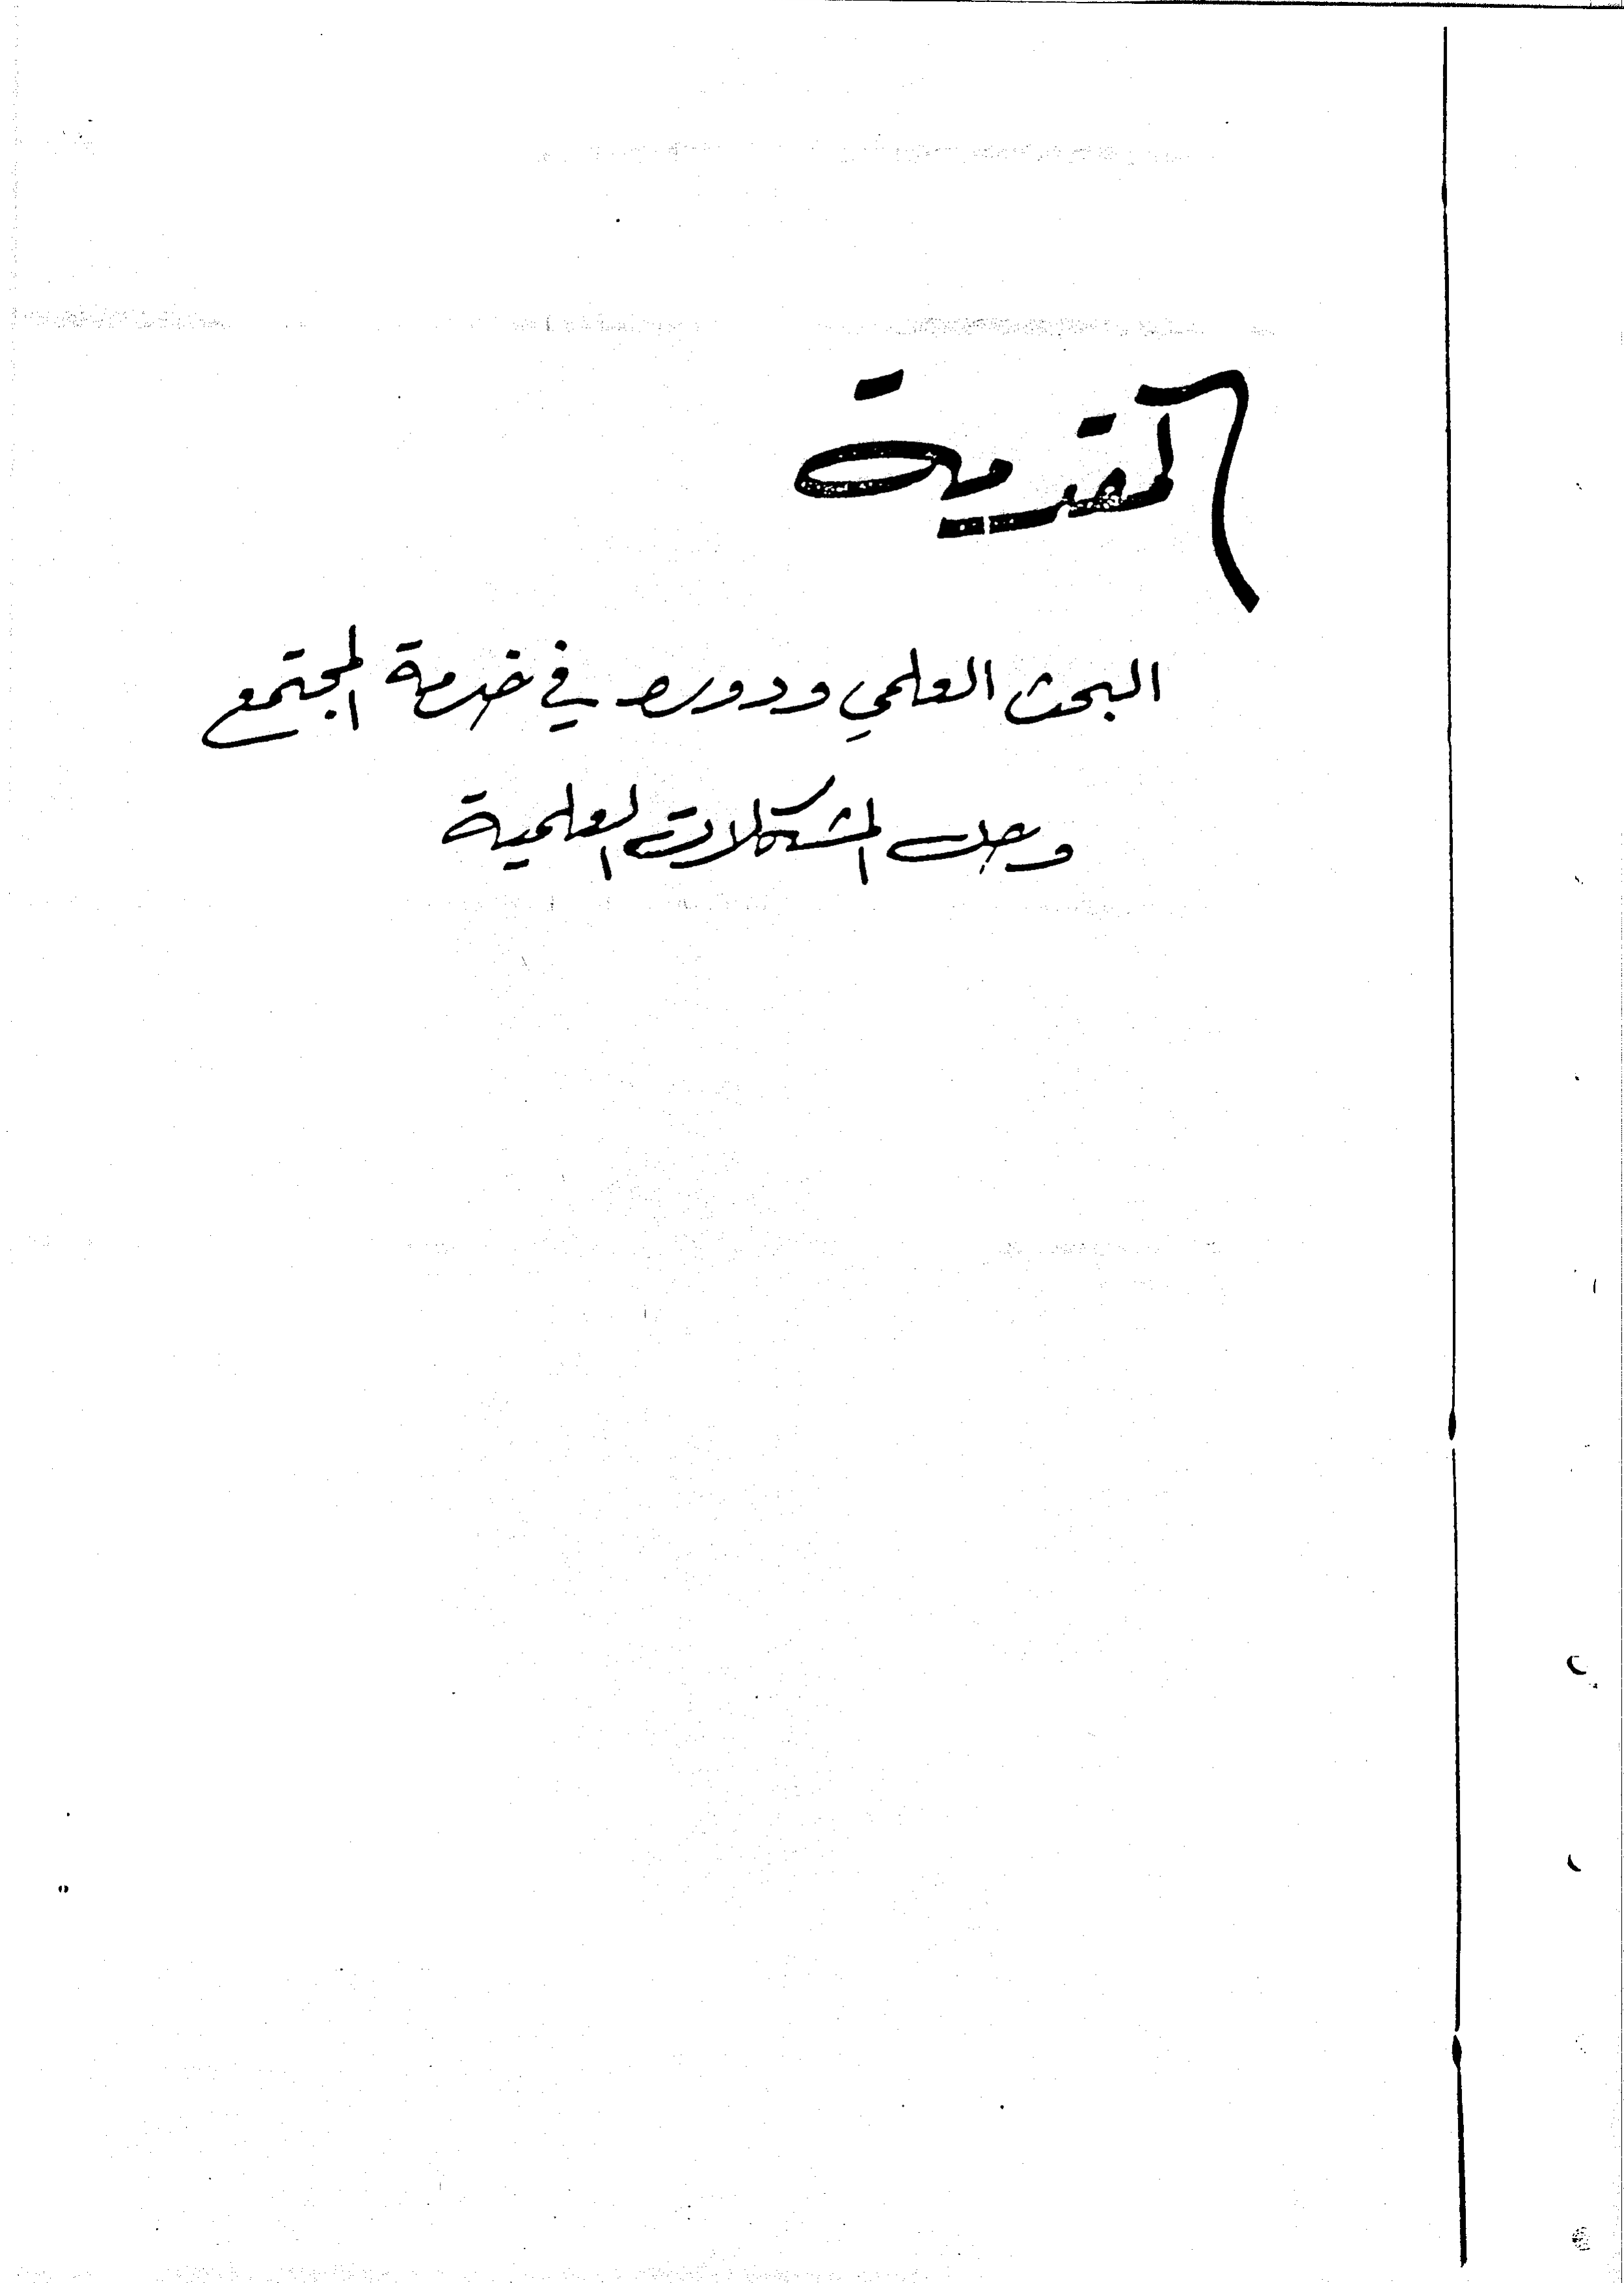 المقدمة
البحث العلمي ودوره في خدمة المجتمع
وحل المشكلات العلمية